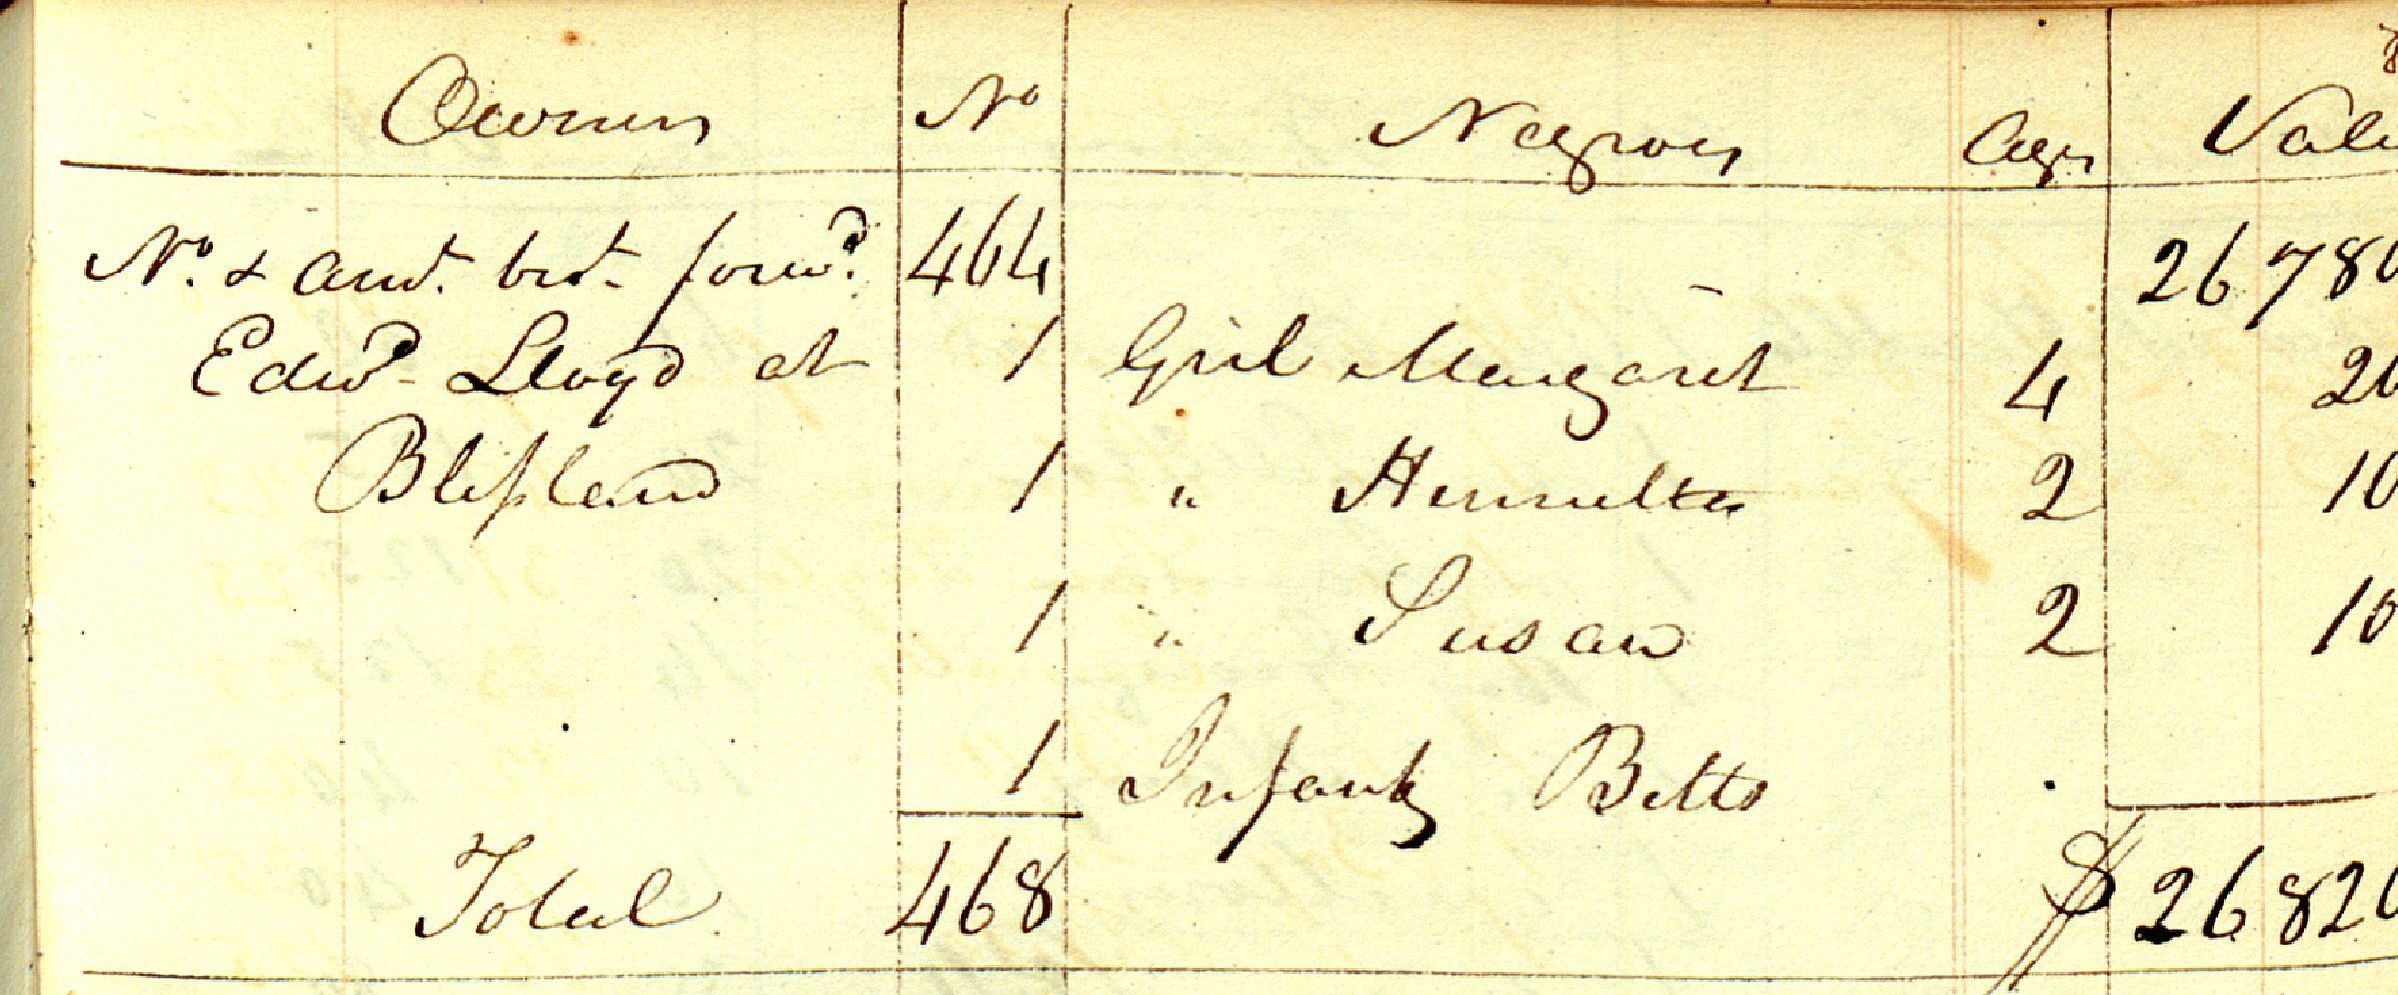 Owners No Negroes Ages Valu
No. & amt. brt. forwd. 464 26780
Edwd. Lloyd at 1 Girl Margaret 4 20
Blissland 1 " Henrietta 2 10
1 " Susan 2 10
1 Infant Betts
Total 468 $ 26820